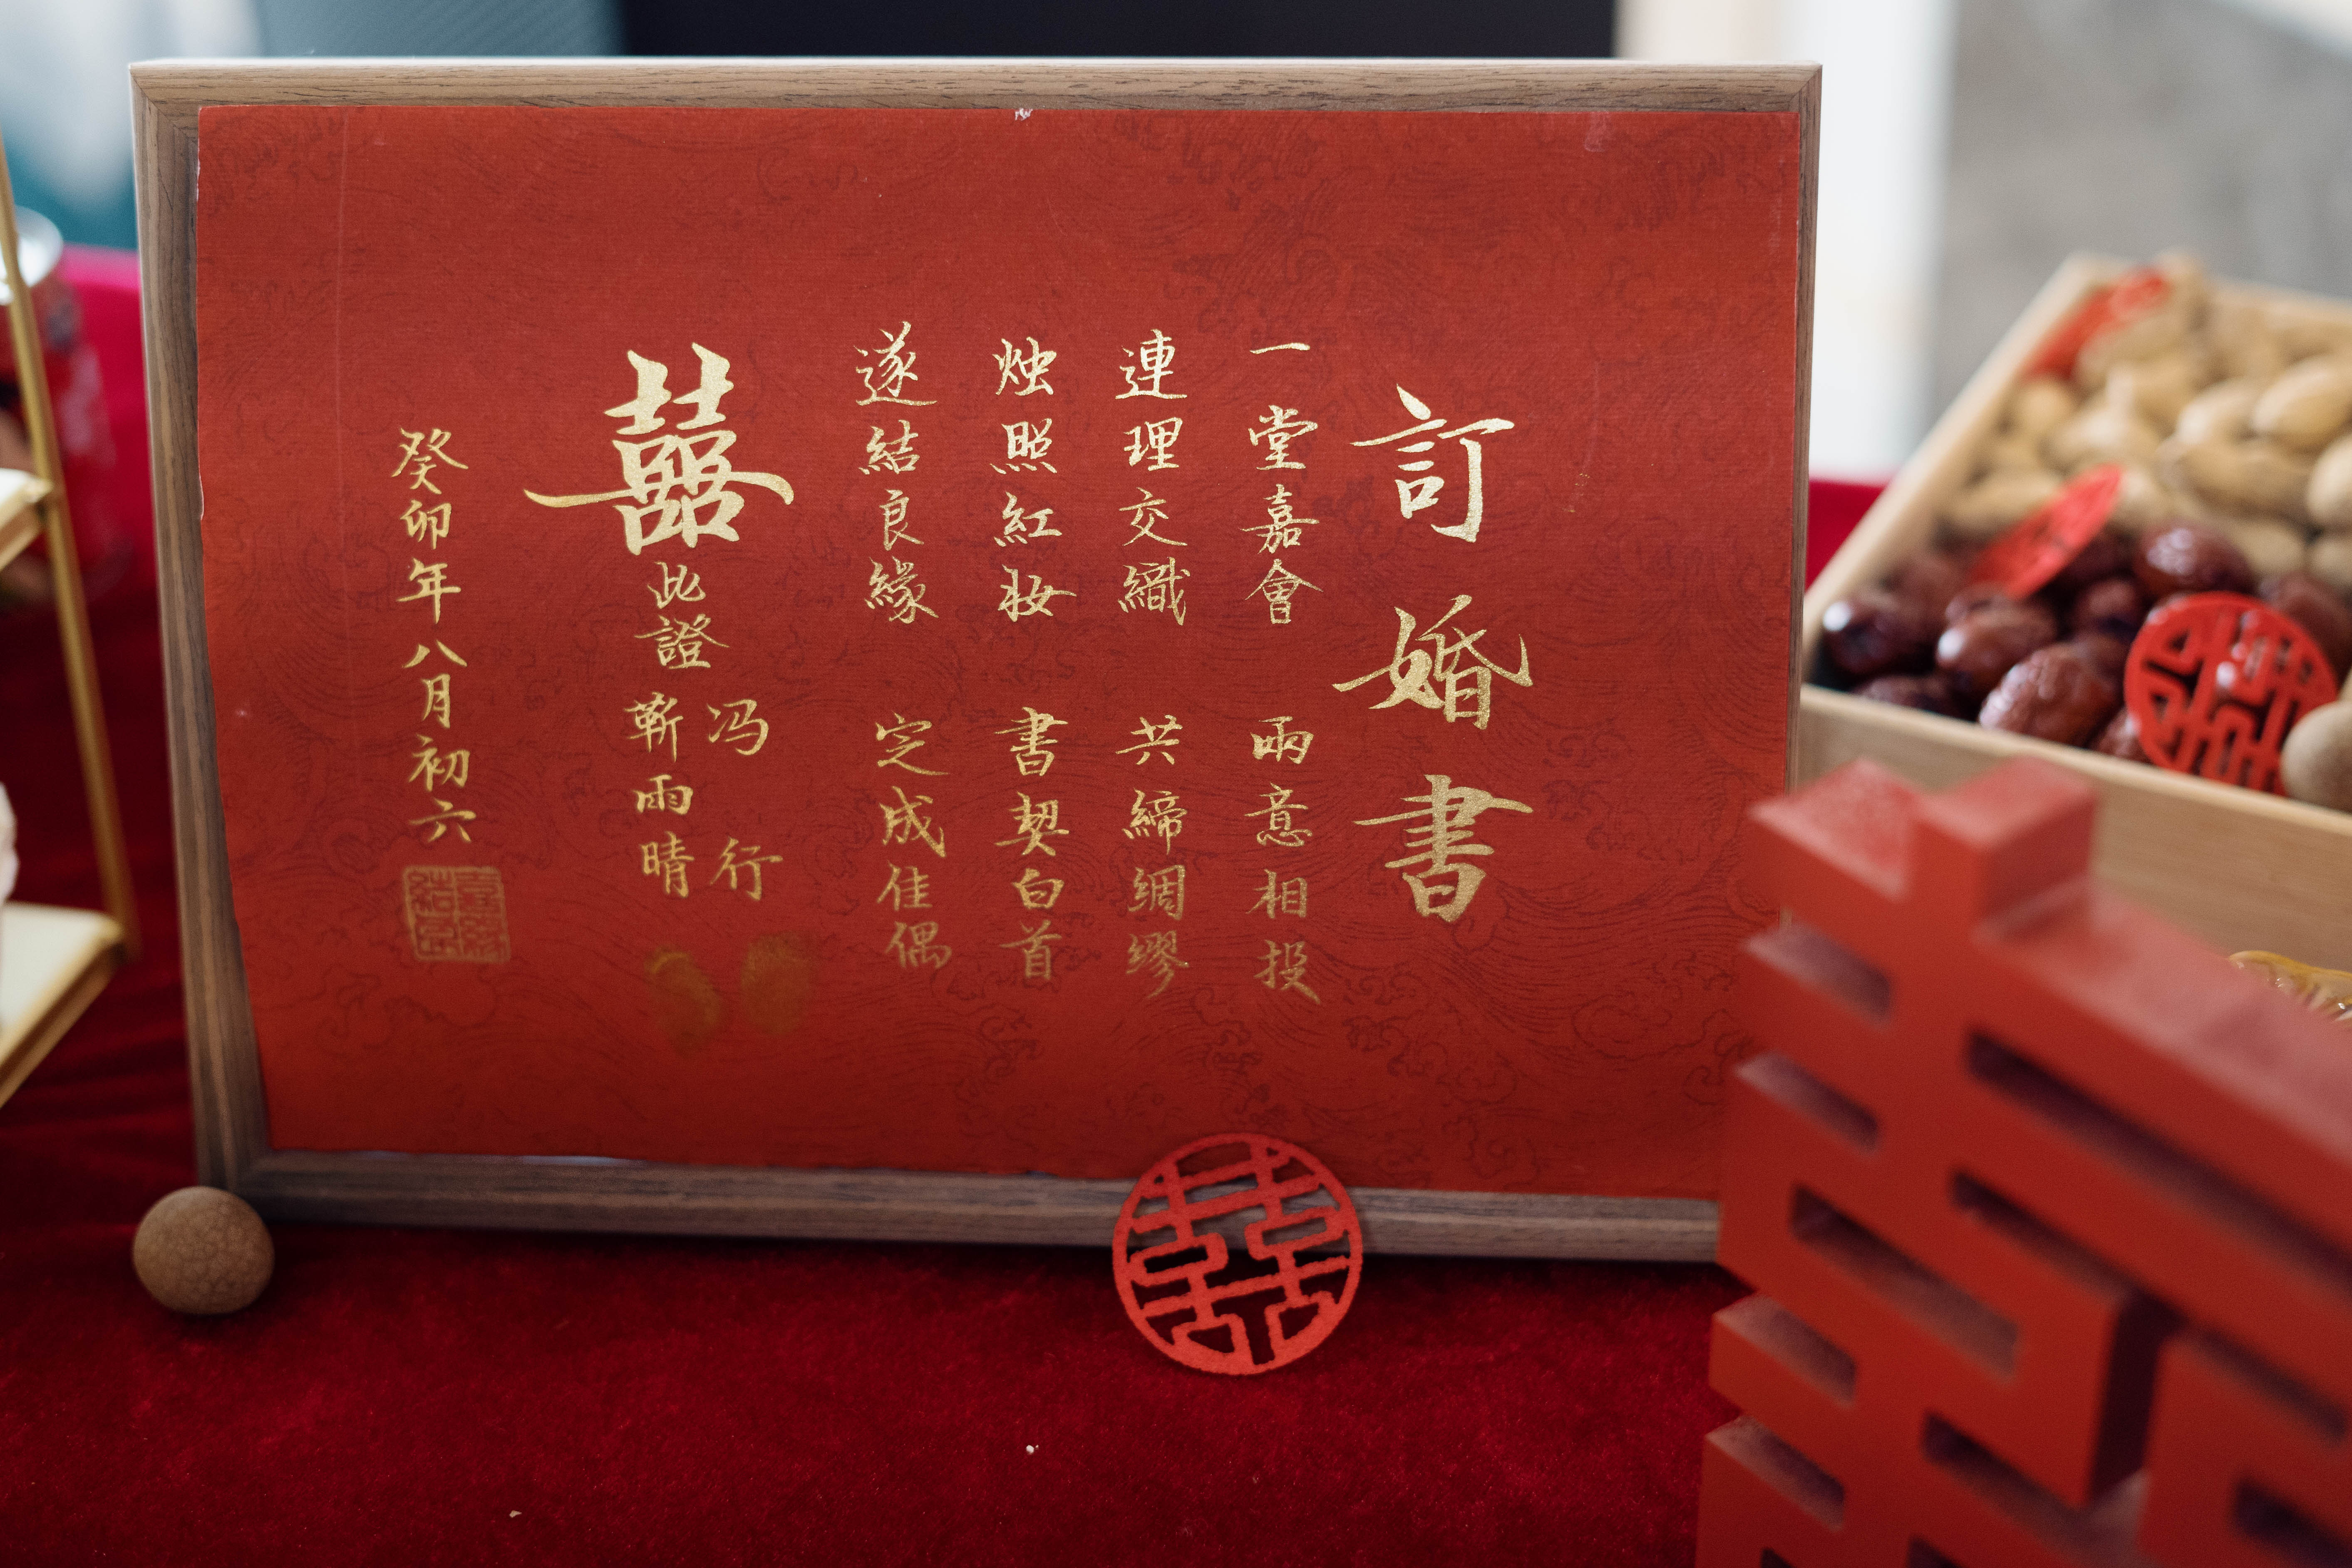 訂婚書
一堂嘉會 兩意相投
連理交織 共締綢繆
烛照紅妆 書契白首
遂結良緣 定成佳偶
囍
此證
冯行
靳雨晴
癸卯年八月初六
囍
囍
囍